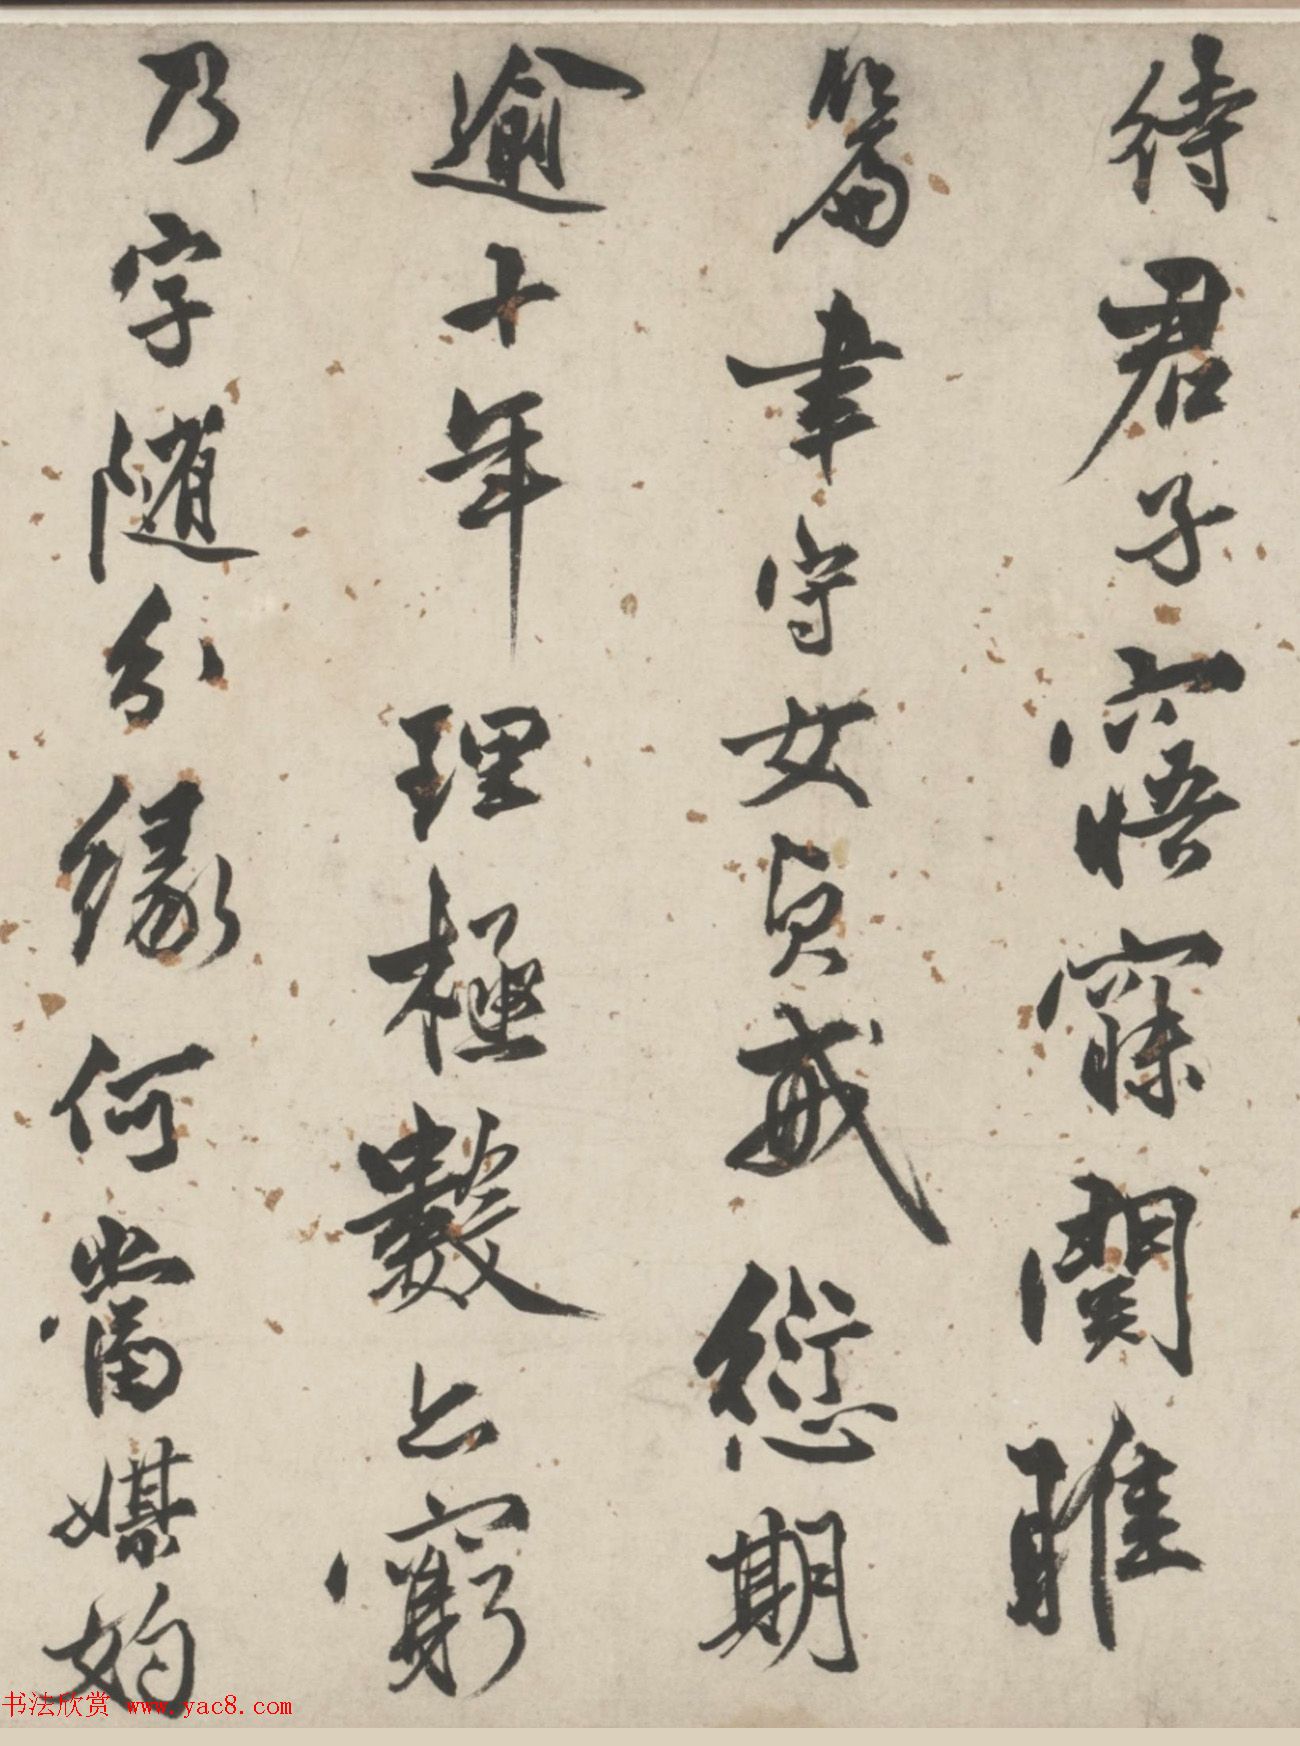 待君子寤寐關雎
篇聿守女貞戒愆期
逾十年理極數亦窮
乃字随分緣何當媒妁
书法欣赏 www.yac8.com